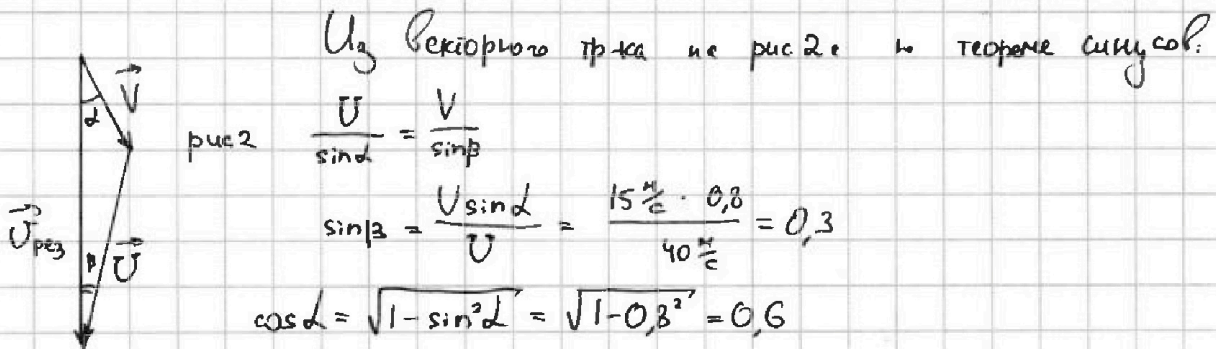 Из векторного тр-ка на рис 2 и теореме синусов:
V⃗
α
рис 2
U/sinα = V/sinβ
sinβ = V sinα/U = 15 м/с · 0,8/40 м/с = 0,3
U⃗рез
β
U⃗
cosα = √(1 - sin²α) = √(1 - 0,8²) = 0,6